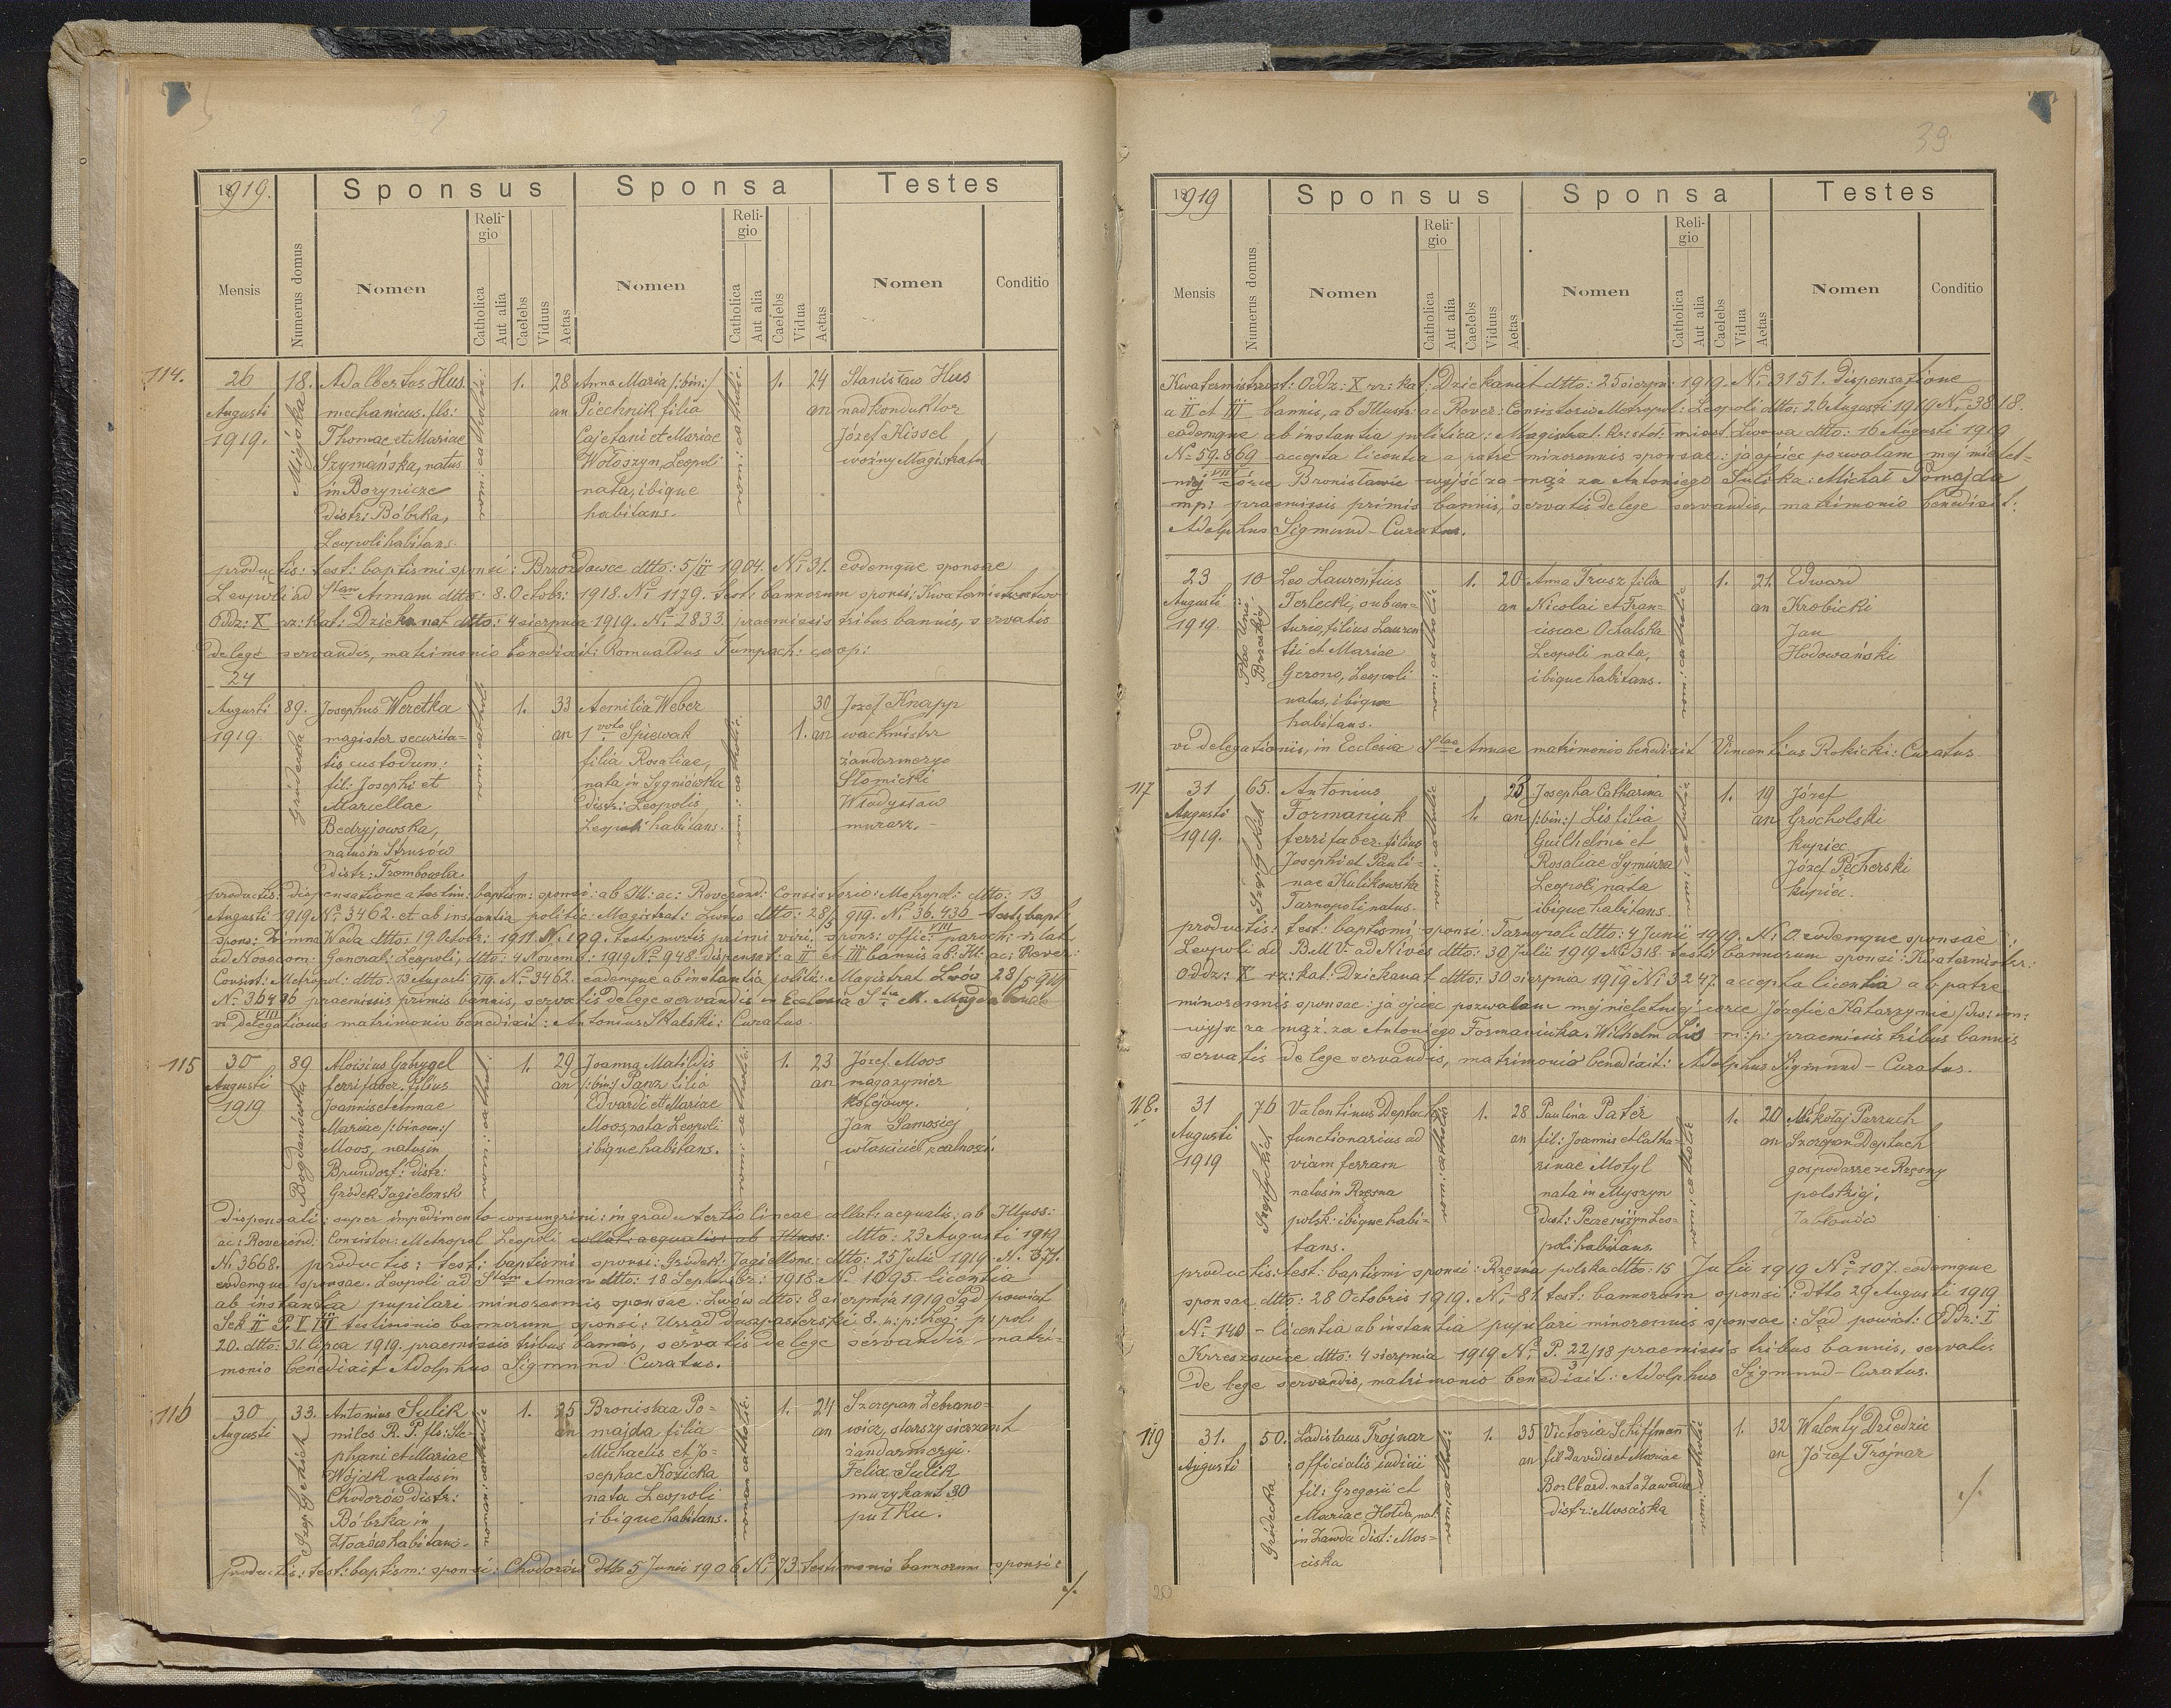 1919.
Sponsus
Sponsa
Testes
Mensis
Numerus domus
Nomen
Religio
Catholica
Aut alia
Caelebs
Viduus
Aetas
Nomen
Religio
Catholica
Aut alia
Caelebs
Vidua
Aetas
Nomen
Conditio
114.
26
Augusti
1919.
18.
Miejska
Adalbertus Hus
mechanicus. fls:
Thomae et Mariae
Szymańska, natus
in Borynicze
distr: Bóbrka,
Leopoli habitans.
rom: catholic:
1.
28
an
Anna Maria /:bin:/
Piechnik filia
Cajetani et Mariae
Wołoszyn, Leopoli
nata, ibique
habitans.
rom: catholic:
1.
24
an
Stanisław Hus
nadkonduktor
Józef Kissel
woźny Magistratu
productis: test: baptismi sponsi: Brzozdowce dtto: 5/II 1904. No 31. eodemque sponsae
Leopoli ad Stam Annam dtto: 8. Octobr: 1918. No 1179. test: bannorum sponsi: Kwatermistrzostwo
Oddz: X rz: kat: Dziekanat dtto: 4 sierpnia 1919. No 2833. praemissis tribus bannis, servatis
de lege servandis, matrimonio benedixit: Romualdus Tumpach: coop:
24
Augusti
1919.
89.
Gródecka
Josephus Weretka
magister securita-
tis custodum:
fil: Josephi et
Marcellae
Bedryjowska,
natus in Strusów
distr: Trembowla
1.
33
an
Aemilia Weber
1 voto Śpiewak
filia Rosaliae,
nata in Sygniówka
distr: Leopolis,
Leopoli habitans.
rom: catholic:
1.
30
an
Józef Knapp
wachmistrz
żandarmerye
Słomicki
Władysław
murarz.
productis: dispensatione a testim: baptism: sponsi: ab Ill: ac: Reverend: Consistorio: Metropol: dtto: 13
Augusti 1919 No 3462. et ab instantia politic: Magistrat: Lwów dtto: 28/5 919. No 36.436 test: bapt:
spons: Zimna Woda dtto: 19. Octobr: 1911. No 199. test: mortis primi viri: spons: offic: paroch: milit
ad Nosocom: General: Leopoli, dtto: 4 Novemb: 1919 No 948. dispensat: a II et III bannis ab: Ill: ac: Rever:
Consist: Metropol: dtto: 13 Augusti 919. No 3462. eademque ab instantia politic: Magistrat Lwów 28/5 919
No 36436 VIII praemissis primis bannis, servatis de lege servandis in Ecclesia Stae M. Magdalenae
vi delegationis matrimonio benedixit: Antonius Skalski: Curatus.
115
30
Augusti
1919
89
Bogdanówka
Aloisius Gabrygel
ferri faber. filius
Joannis et Annae
Mariae /:binom:/
Moos, natus in
Brundorf: distr:
Gródek Jagielonsk:
1.
29
an
Joanna Matildis
/:bin:/ Panz filia
Edvardi et Mariae
Moos, nata Leopoli
ibique habitans.
rom: catholic:
1.
23
an
Józef Moos
magazynier
kolejowy.
Jan Samosiej
właściciel realnosci.
Dispensati: super impedimento consangvini: in gradu tertio lineae collat: aequalis: ab Illuss:
ac: Reverend: Consistor: Metropol Leopoli collat: aequalis: ab Illuss: dtto: 23 Augusti 1919
No 3668. productis: test: baptismi sponsi: Gródek: Jagiellons: dtto: 25 Julii 1919. No 371.
eodemque sponsae. Leopoli ad Stam Annam dtto: 18 Septembr: 1918. No 1095. licentia
ab instantia pupilari minorennis sponsae: Lwów dtto: 8 sierpnia 1919 Sąd powiat
Sek II P. V III testimonio bannorum sponsi: Urząd duszpasterski 8. p: p: Leg: p: pol:
20. dtto: 31. lipca 1919. praemissis tribus bannis, servatis de lege servandis matri-
monio benedixit Adolphus Sigmund. Curatus.
116
30
Augusti
33.
Szeptyckich
Antonius Sulik
miles R. P. fls: Ste-
phani et Mariae
Wójcik natus in
Chodorów distr:
Bóbrka in
habitans.
roman: catholic
1.
25
an
Bronislaa Po-
majda filia
Michaelis et Jo-
sephae Kozicka
nata Leopoli
ibique habitans.
roman: catholic:
1.
24
an
Szczepan Zebrano-
wicz, starszy sierzant
żandarmeryi.
Felix Sulik
muzykant 30
pułku.
productis: test: baptism: sponsi: Chodorów dtto 5 Junii 1906 No 73. testimonio bannorum sponsi:
./.
39
1919
Sponsus
Sponsa
Testes
Mensis
Numerus domus
Nomen
Religio
Catholica
Aut alia
Caelebs
Viduus
Aetas
Nomen
Religio
Catholica
Aut alia
Caelebs
Vidua
Aetas
Nomen
Conditio
Kwatermistrzost: Oddz: X rz: kat: Dziekanat dtto: 25 sierpn: 1919. No 3151. dispensatione
a II et III bannis, ab Illustr: ac Rever: Consistorio Metropol: Leopoli dtto: 26 Augusti 1919 No 3818.
eademque ab instantia politica: Magistrat. kr: stoł: miast. Lwowa dtto: 16 Augusti 1919
No 59.869 VIII accepta licentia a patre minorennis sponsae: ja ojciec pozwalam mej nielet-
niej córce Bronisławie wyjść za mąż za Antoniego Sulika: Michał Pomajda
mp: praemissis primis bannis, servatis de lege servandis, matrimonio benedixit:
Adolphus Sigmund - Curatus.
23
Augusti
1919.
10
Plac Unii
Brzeskiej
Leo Laurentius
Terlecki, suban-
turio, filius Lauren
tii et Mariae
Gerono, Leopoli
natus, ibique
habitans.
rom: catholic
1.
20
an
Anna Trusz filia
Nicolai et Fran-
ciscae Ochalska
Leopoli nata,
ibique habitans.
rom: catholic
1.
21.
an
Edward
Krobicki
Jan
Hodowański
vi delegationis, in Ecclesia Stae Annae matrimonio benedixit Vincentius Rokicki: Curatus.
117
31
Augusti
1919.
65.
Szeptyckich
Antonius
Formaniuk
ferri faber. filius
Josephi et Pauli-
nae Kulikowska
Tarnopoli natus.
1.
23
an
Josepha Catharina
/:bin:/ Lis filia
Guilhelmi et
Rosaliae
Leopoli nata
ibique habitans.
1.
19
an
Józef
Grocholski
kupiec
Józef Pecherski
kupiec.
productis: test: baptismi sponsi: Tarnopoli dtto: 4 Junii 1919. No 0. eodemque sponsae:
Leopoli ad B.M.V. ad Nives dtto: 30 Julii 1919 No 318. testis bannorum sponsi: Kwatermistr:
Oddz: X rz: kat: Dziekanat dtto: 30 sierpnia 1919 No 3247. accepta licentia ab patre
minorennis sponsae: ja ojciec pozwalam mej nieletniej corce Józefie Katarzynie /:dw: im:
wyjsc za mąż. za Antoniego Formaniuka. Wilhelm Lis m: p: praemissis tribus bannis
servatis de lege servandis, matrimonio benedixit: Adolphus Sigmund - Curatus.
118.
31
Augusti
1919
76
Szeptyckich
Valentinus Deptuch
functionarius ad
viam ferram
natus in Rzęsna
polsk: ibique habi-
tans.
rom: catholic
1.
28
an
Paulina Pater
fil: Joannis et Catha-
rinae Motyl
nata in Myszyn
dist: Peczeniżyn Leo-
poli habitans.
rom: catholic
1.
20
an
Mikołaj Parzuch
Szczepan Deptuch
gospodarze ze Rzęsny
polskiej,
productis: test: baptismi sponsi: Rzęsna polska dtto: 15 Julii 1919 No 107. eodemque
sponsae dtto: 28 Octobris 1919. No 81. test: bannorum sponsi: dtto 29 Augusti 1919
No 140 - licentia ab instantia pupilari minorennis sponsae: Sąd powiat: Oddz: I
Krzeszowice dtto: 4 sierpnia 1919 No P. 22/18 3 praemissis tribus bannis, servatis
de lege servandis, matrimonio benedixit: Adolphus Sigmund - Curatus.
119
31.
Augusti
50.
Gródecka
Ladislaus Trojnar
officialis iudicii
fil: Gregorii et
Mariae Hołda, nat:
in Zawda dist: Mos-
ciska
rom: catholic:
1.
35
an
Victoria Schiffmann
fil Davidis et Mariae
nata Zawada
distr: Mościska
rom: catholic
1.
32
an
Walenty Dziedzic
Józef Trojnar
./.
20